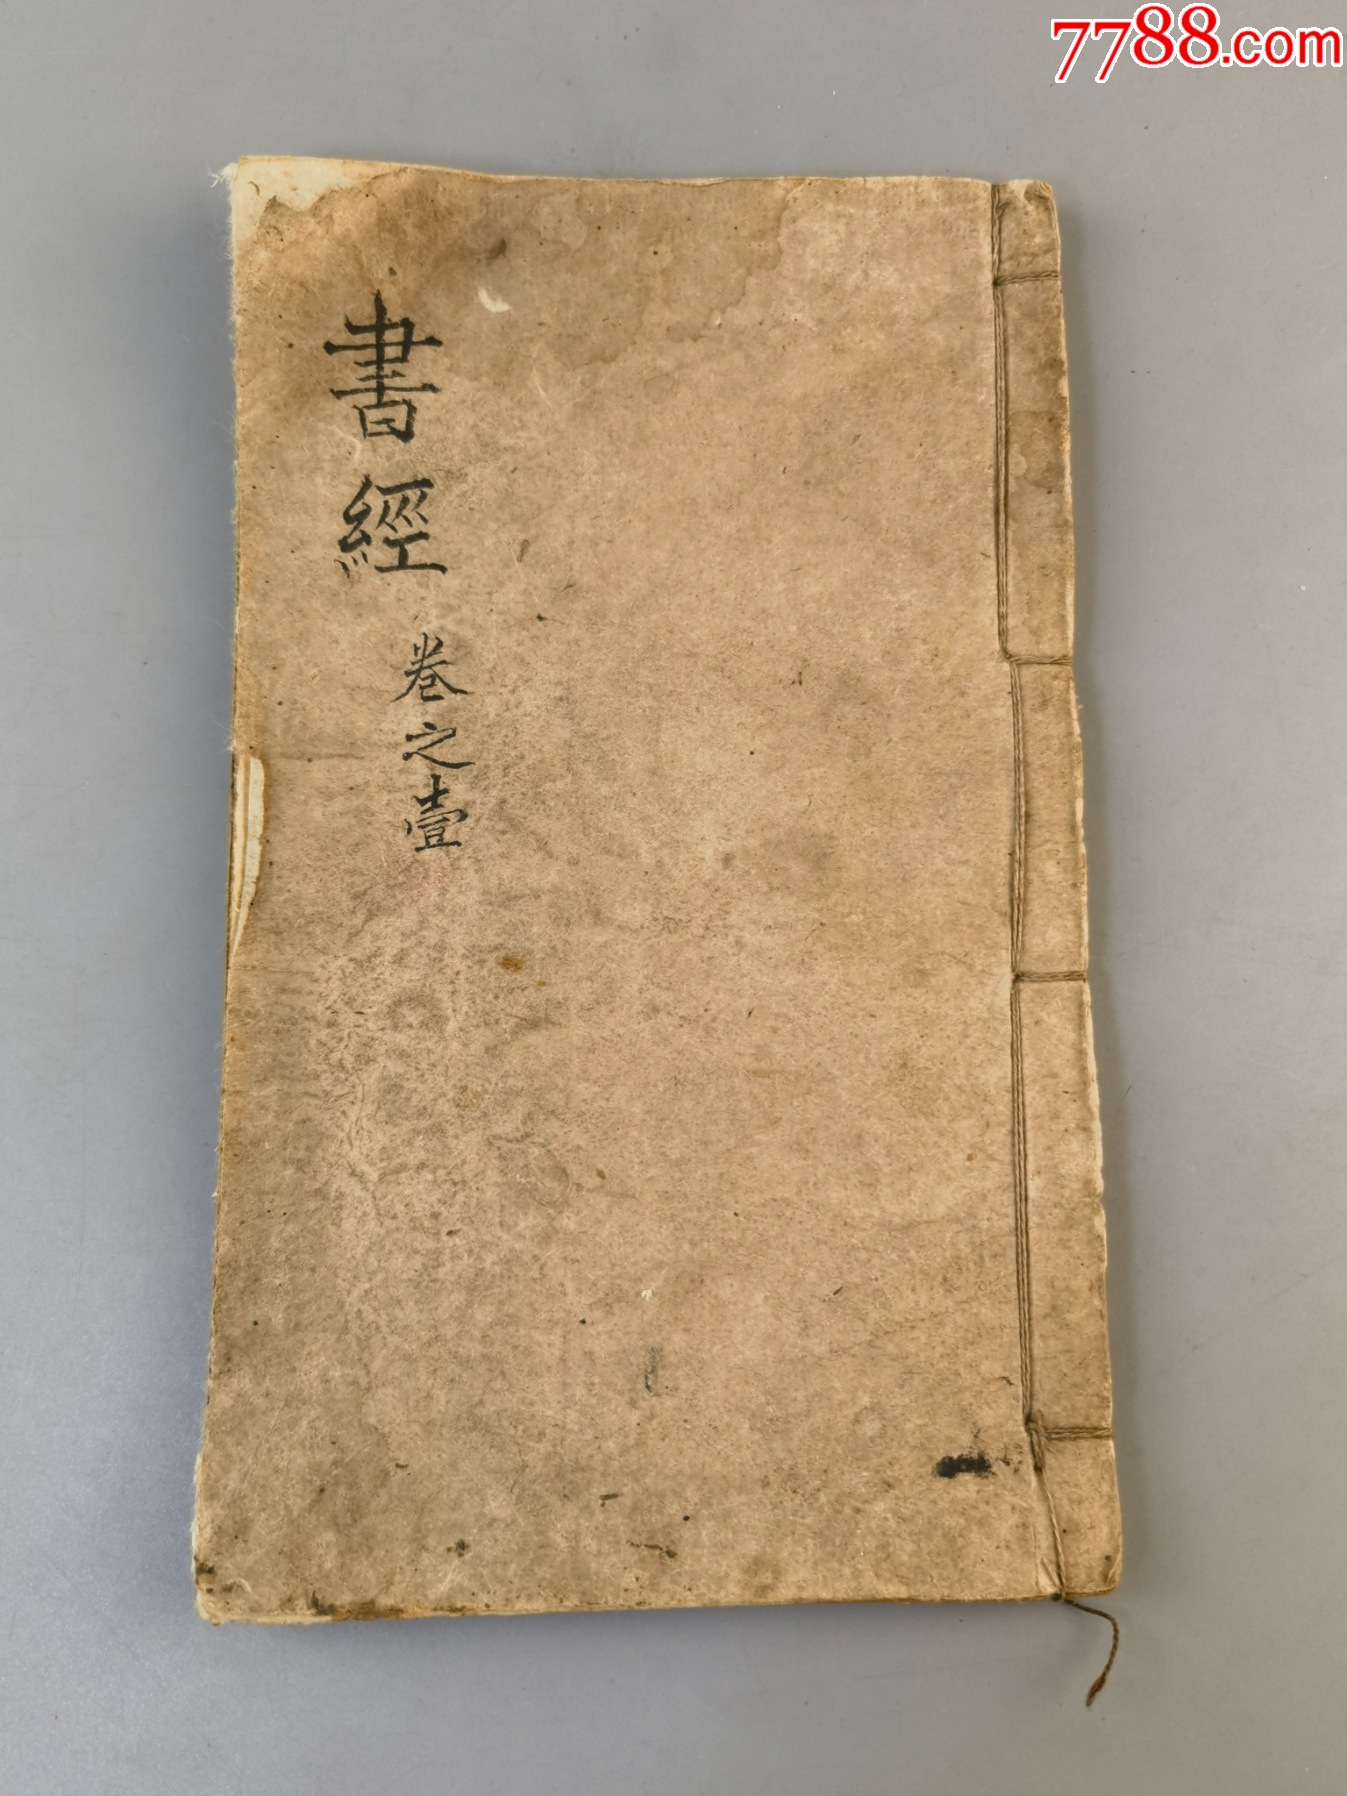 7788.com
書經
卷之壹